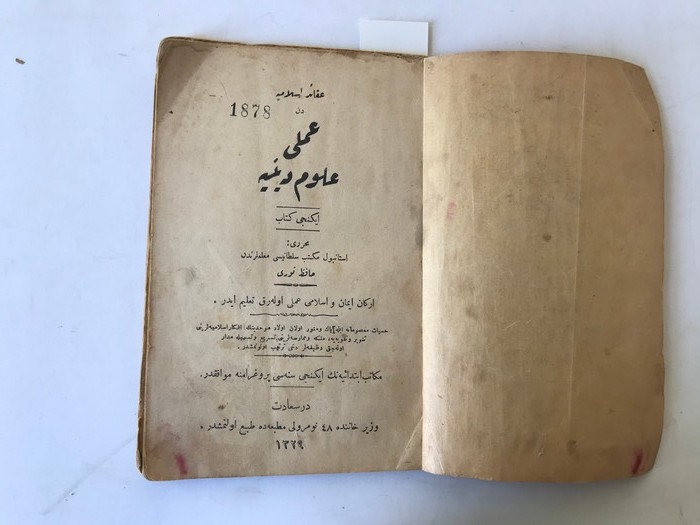 عقائد اسلامیه
دن
1878
عملی
علوم دینیه
ایکنجی کتاب
محرری :
استانبول مکتب سلطانیسی معلملرندن
حافظ نوری
ارکان ایمان و اسلامی عملی اوله‌رق تعلیم ایدر .
مکاتب ابتدائیه‌نك ایکنجی سنه‌سی پروغرامنه موافقدر.
درسعادت
وزیر خاننده ٤٨ نومرولی مطبعه‌ده طبع اولنمشدر .
١٣٢٩